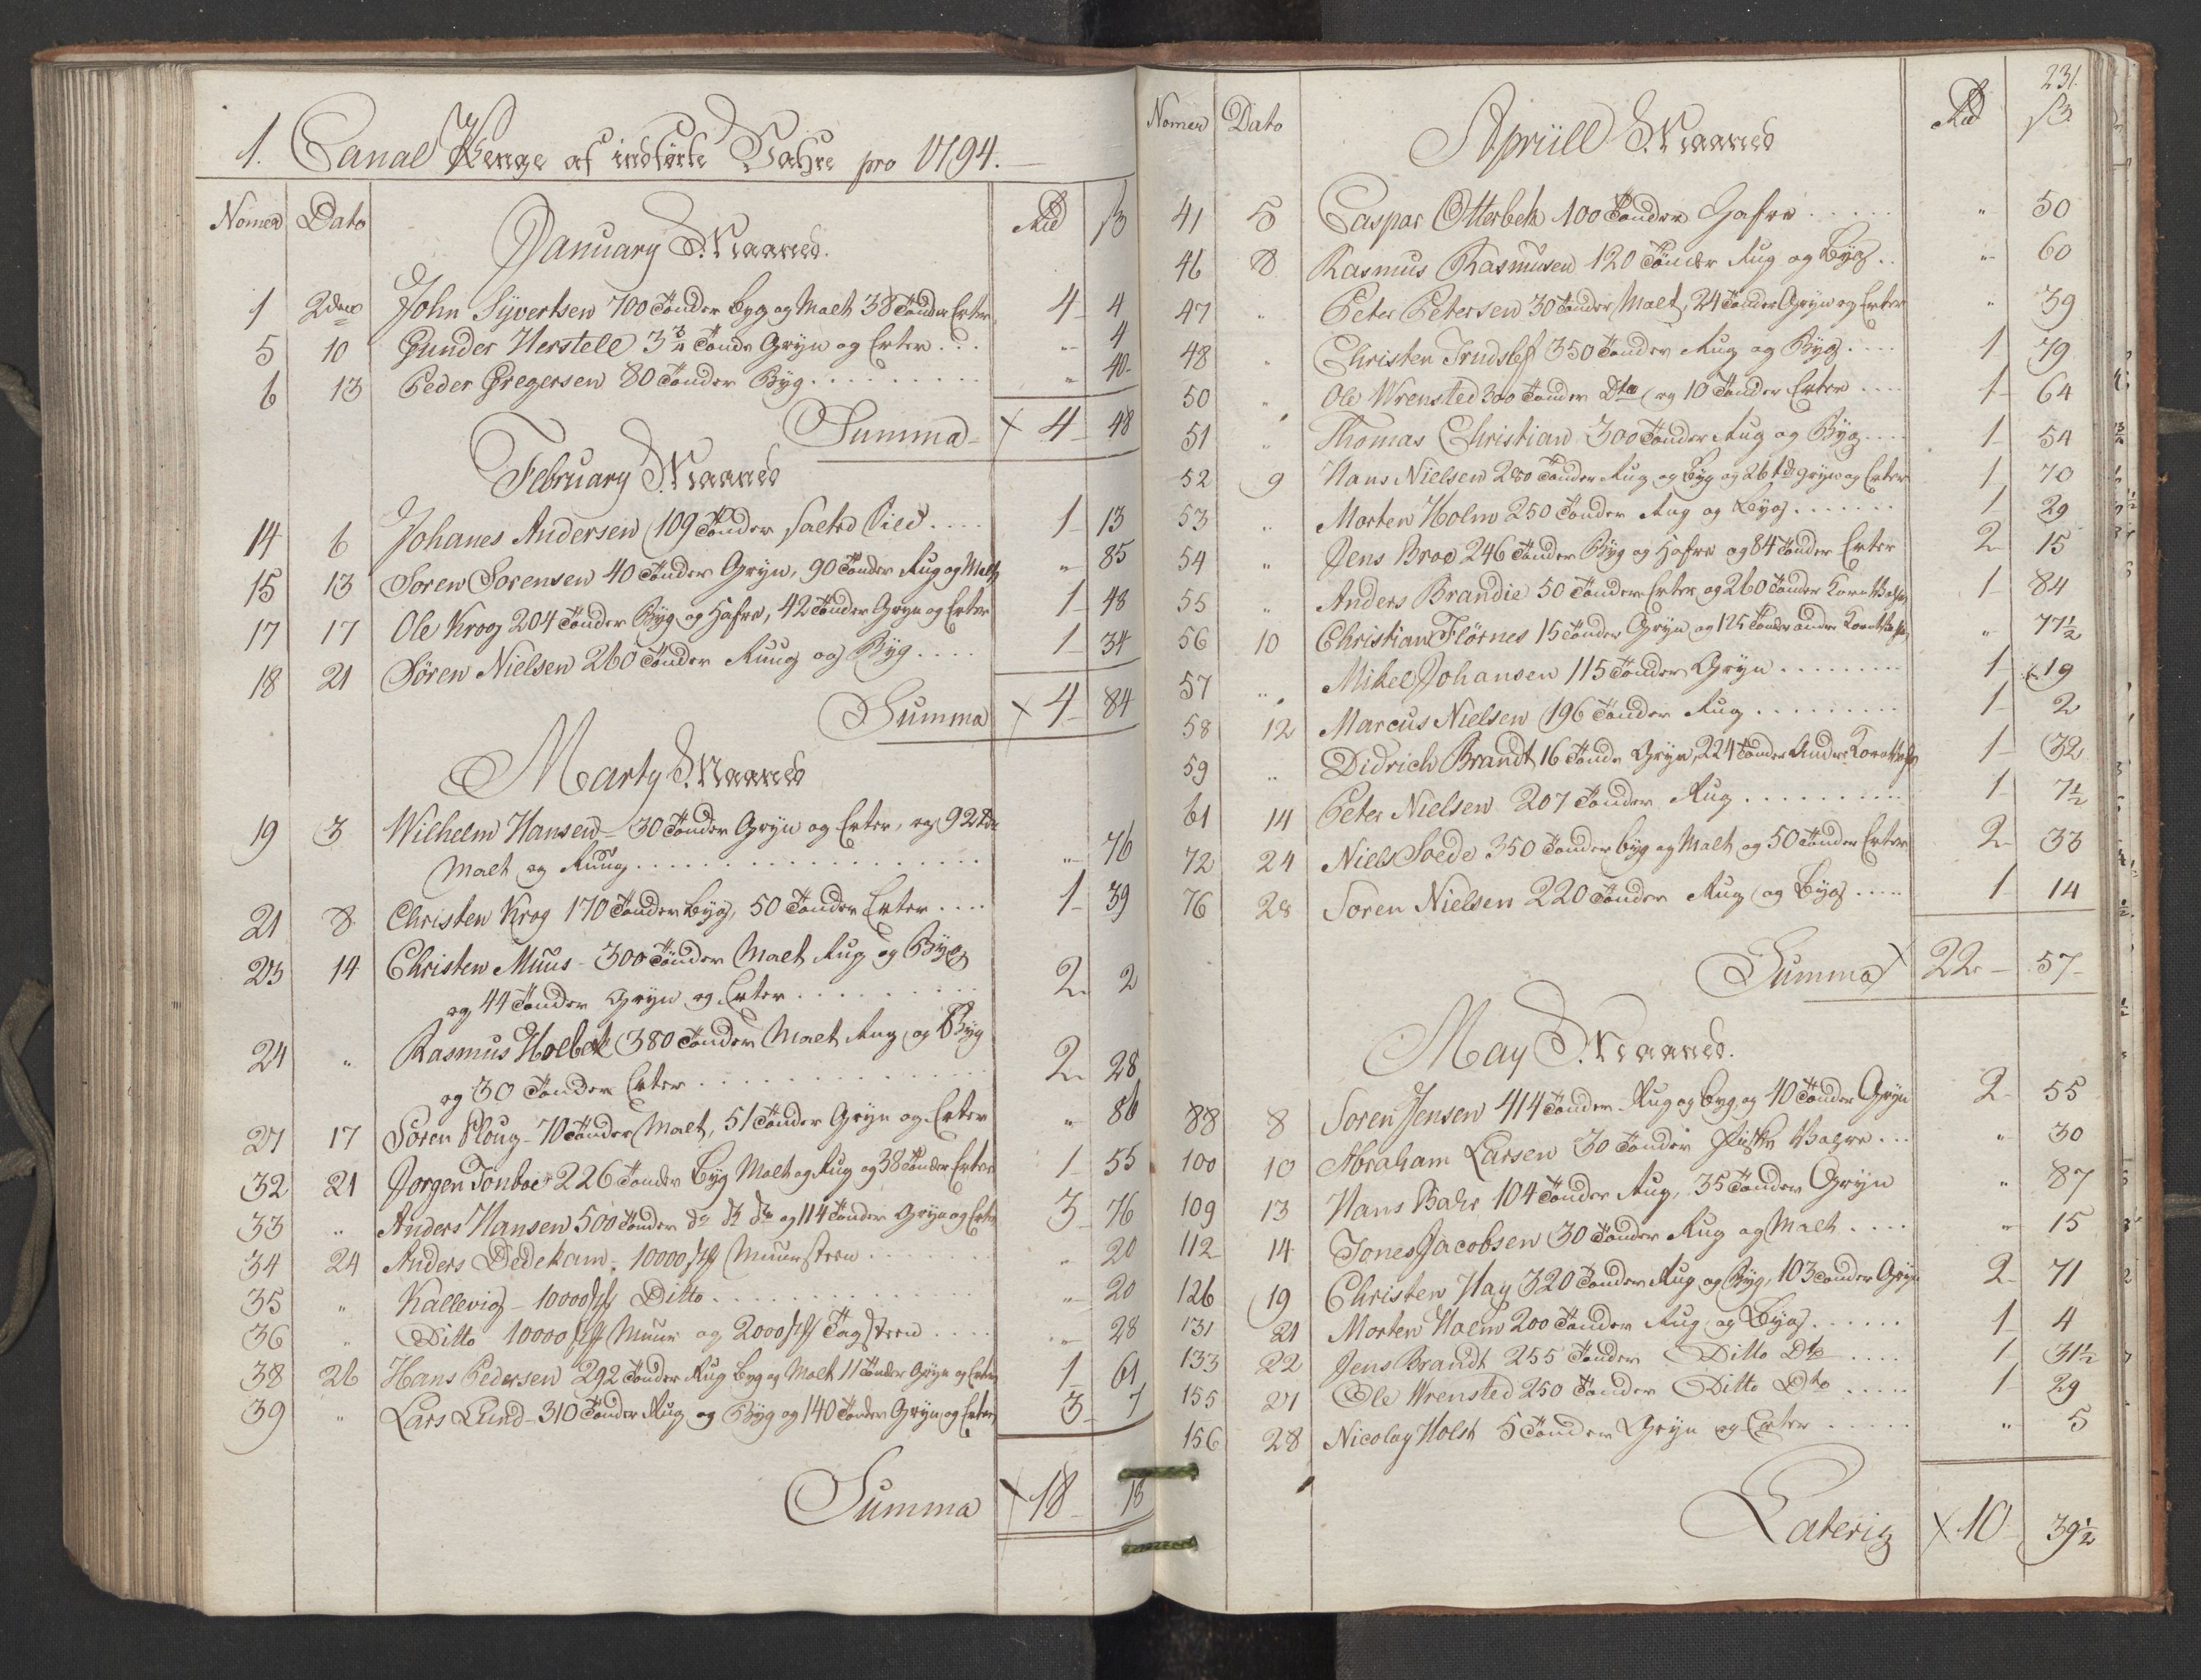 1. Canal Penge af indførte Vahre pro 1794.
Nomer Dato January Maaned. Rd ß
1 2den John Syvertsen 700 Tønder byg og Malt 38 Tønder Erter 4 4
5 10 Gunder Herstell 3 3/4 Tønde Gryn og Erter ... " 4
6 13 Peder Gregersen 80 Tønder Byg ........ " 40
Summa 4 48
February Maaned
14 6 Johanes Andersen 109 Tønder saeted Sild .... 1 13
15 13 Soren Sorensen 40 Tønder Gryn, 90 Tønder Rug og Malt " 85
17 17 Ole Krog 204 Tønder Byg og Hafre, 42 Tønder Gryn og Erter 1 48
18 21 Søren Nielsen 260 Tønder Ruug og Byg .... 1 34
Summa 4 84
Marty Maaned
19 3 Wilhelm Hansen - 30 Tønder Gryn og Erter, og 92 tdr
Malt og Ruug .......... " 76
21 8 Christen Krog 170 Tønder byg, 50 Tønder Erter .... 1 39
23 14 Christen Muus - 300 Tønder Malt Rug og Byg
og 44 Tønder Gryn og Erter ........ 2 2
24 " Rasmus Holbek 380 Tønder Malt Rug og Byg
og 30 Tønder Erter .......... 2 28
27 17 Soren Ploug - 70 Tønder Malt, 51 Tønder Gryn og Erter " 86
32 21 Jorgen Tonboe 226 Tønder Byg Malt og Rug og 38 Tønder Erter 1 55
33 " Anders Hansen 500 Tønder do do do og 114 Tønder Gryn og Erter 3 76
34 24 Anders Dedekam - 10000 stk Muursteen ....... " 20
35 " Kallevig - 10000 stk Ditto .......... " 20
36 " Ditto 10000 stk Muur og 2000 stk Tagsteen .... " 28
38 26 Hans Pedersen 292 Tønder Rug byg og Malt 11 Tønder Gryn og Erter 1 61
39 " Lars Lund - 310 Tønder Rug og Byg og 140 Tønder Gryn og Erter 3 7
Summa 18 18
231.
Nomer Dato Apriill Maaned Rd ß
41 5 Caspar Otterbek 100 Tønder Hafre ..... " 50
46 8 Rasmus Rasmusen 120 Tønder Rug og Byg .. " 60
47 " Peter Petersen 30 Tønder Malt, 24 Tønder Gryn og Erter " 39
48 " Christen Trudslef 350 Tønder Rug og Byg .... 1 79
50 " Ole Wrensted 300 Tønder Dto og 10 Tønder Erter .... 1 64
51 " Thomas Christian 300 Tønder Rug og Byg .... 1 54
52 9 Hans Nielsen 280 Tønder Rug og Byg og 26 td gryn og Erter 1 70
53 " Morten Holm 250 Tønder Rug og Byg ....... 1 29
54 " Jens Broe 246 Tønder Byg og Hafre og 84 Tønder Erter 2 15
55 " Anders Brandie 50 Tønder Erter og 260 Tønder Korn Vahre 1 84
56 10 Christian Flørnes 15 Tønder Gryn og 125 Tønder andre Korn Vahre " 77 1/2
57 " Mikel Johansen 115 Tønder Gryn ........ 1 19
58 12 Marcus Nielsen 196 Tønder Rug ......... 1 2
59 " Didrich Brandt 16 Tønde Gryn, 224 Tønder Andre Korn Vahre 1 32
61 14 Peter Nielsen 207 Tønder Rug ......... 1 7 1/2
72 24 Niels Soede 350 Tønder byg og Malt og 50 Tønder Erter 2 33
76 28 Soren Nielsen 220 Tønder Rug og Byg ..... 1 14
Summa 22 57
May Maaned.
88 8 Soren Jensen 414 Tønder Rug og byg, og 40 Tønder Gryn 2 55
100 10 Abraham Larsen 30 Tønder Vahre ... " 30
109 13 Hans Bahr 104 Tønder Rug, 35 Tønder Gryn " 87
112 14 Tones Jacobsen 30 Tønder Rug og Malt .... " 15
126 19 Christen Hay 320 Tønder Rug og Byg, 103 Tønder Gryn 2 71
131 21 Morten Holm 200 Tønder Rug og Byg ...... 1 4
133 22 Jens Brandt 255 Tønder Ditto Dto .... 1 31 1/2
155 27 Ole Wrensted 250 Tønder Ditto Dto ..... 1 29
156 28 Nicolay Holst 5 Tønder Gryn og Erter ..... " 5
Laterig 10 39 1/2